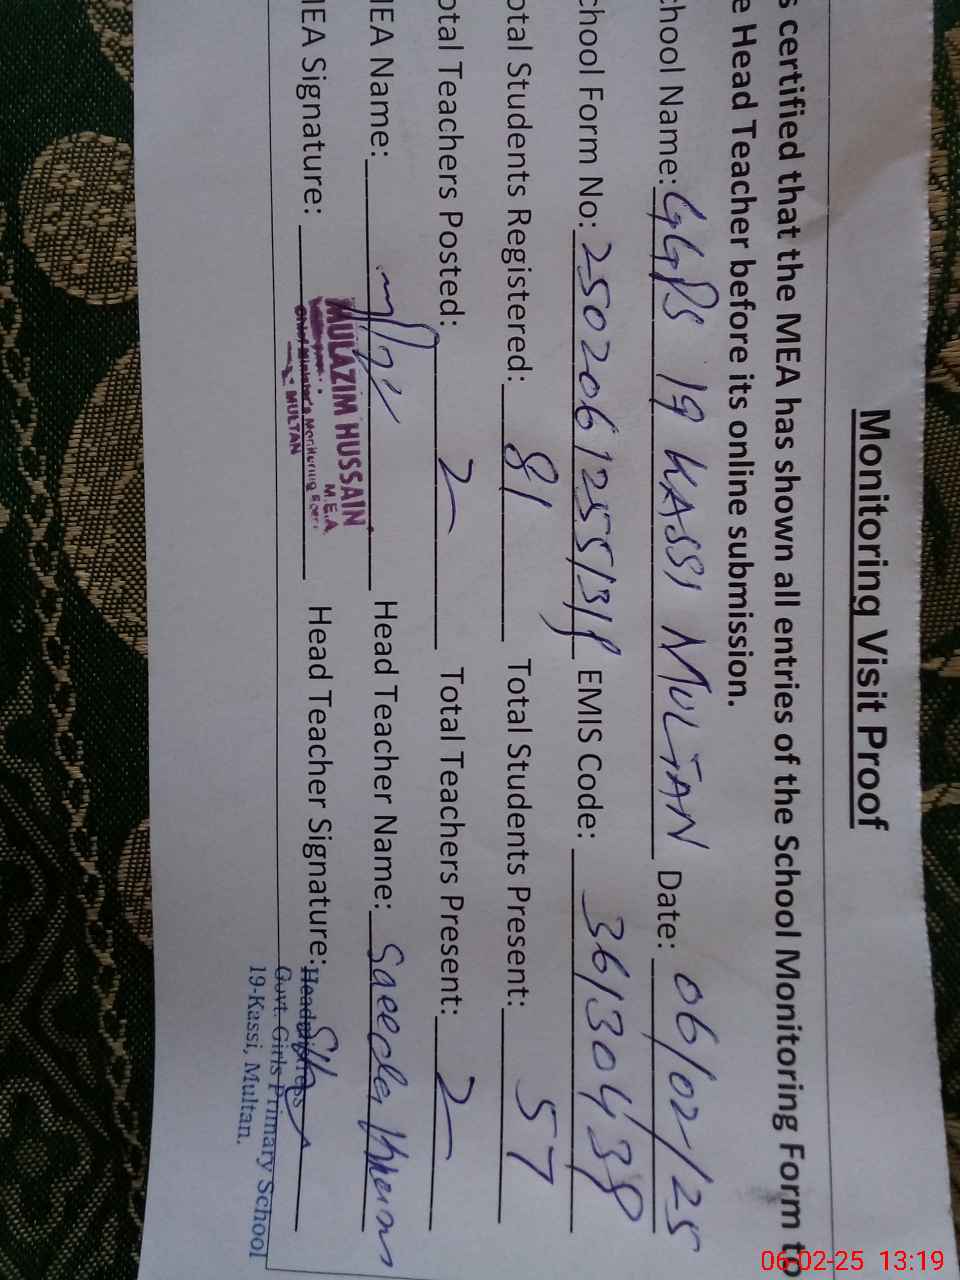 Monitoring Visit Proof
s certified that the MEA has shown all entries of the School Monitoring Form to
e Head Teacher before its online submission.
chool Name: GGPS 19 KASSI MULTAN Date: 06/02/25
chool Form No: EMIS Code: 36130438
otal Students Registered: 81 Total Students Present: 57
otal Teachers Posted: 2 Total Teachers Present: 2
MEA Name: Head Teacher Name: Saeeda
MULAZIM HUSSAIN
M.E.A
Chief Minister's Monitoring Force
MULTAN
MEA Signature: Head Teacher Signature:
Headmistress
Govt. Girls Primary School
19-Kassi, Multan.
06-02-25 13:19